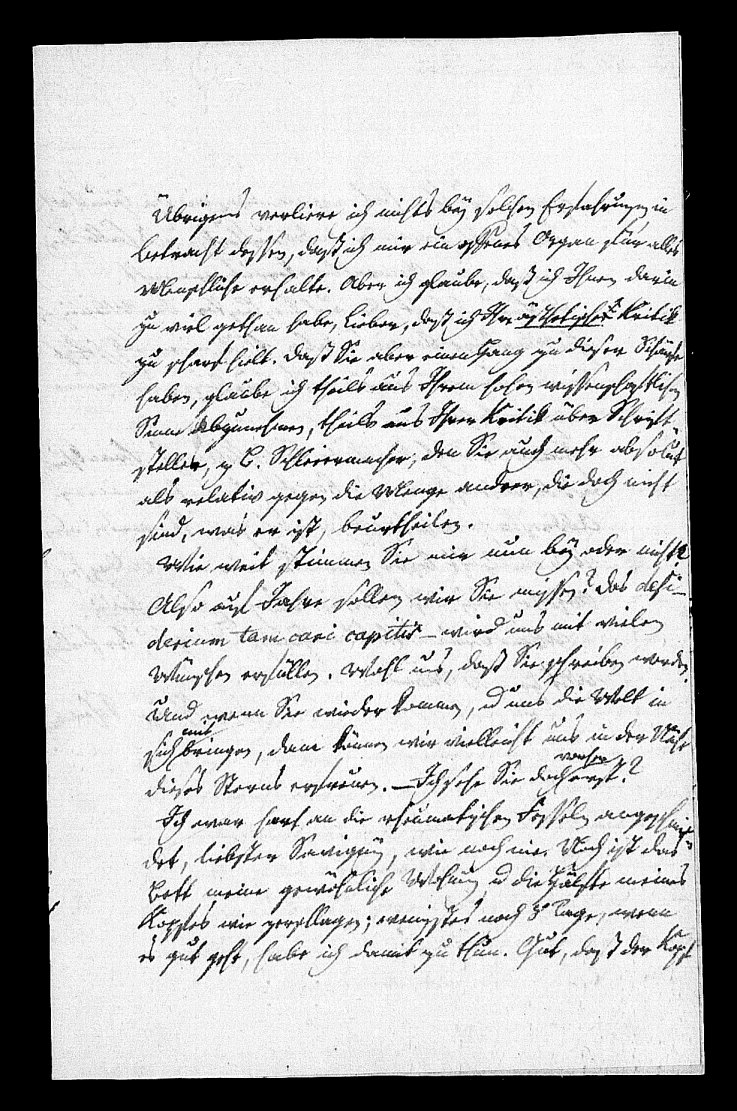 Übrigens verliere ich nichts bey solchen Erfahrungen in
Betracht dessen, daß ich mir ein offenes Organ für alles
Menschliche erhalte. Aber ich glaube, daß ich Ihnen darin
zu viel gethan habe, Lieber, daß ich Ihre ästhetische Kritik
zu scharf hielt. Daß Sie aber einen Hang zu dieser Schärfe
haben, glaube ich theils aus Ihrem hohen wissenschaftlichen
Sinne abzunehmen, theils aus Ihrer Kritik über Schrift
steller, z. B. Schleiermacher, den Sie auch mehr absolut
als relativ gegen die Menge andrer, die doch nicht
sind, was er ist, beurtheilen.
Wie weit stimmen Sie mir nun bey oder nicht?
Also auf Jahre sollen wir Sie missen? Das desi-
derium tam cari capitis – wird uns mit vielen
Wünschen erfüllen. Wohl uns, daß Sie schreiben werden.
Und wenn Sie wieder kommen, u uns die Welt in
sich mit bringen, dann können wir vielleicht uns in der Nähe
dieses Sterns erfreuen. – Ich sehe Sie doch vorher erst?
Ich war hart an die rheumatischen Fesseln angeschmie
det, liebster Savigny, wie noch nie. Noch ist das
Bett meine gewöhnliche Wohnung u die Hälfte meines
Kopfes wie zerschlagen; wenigstens noch 8 Tage, wenn
es gut geht, habe ich damit zu thun. Gut, daß der Kopf